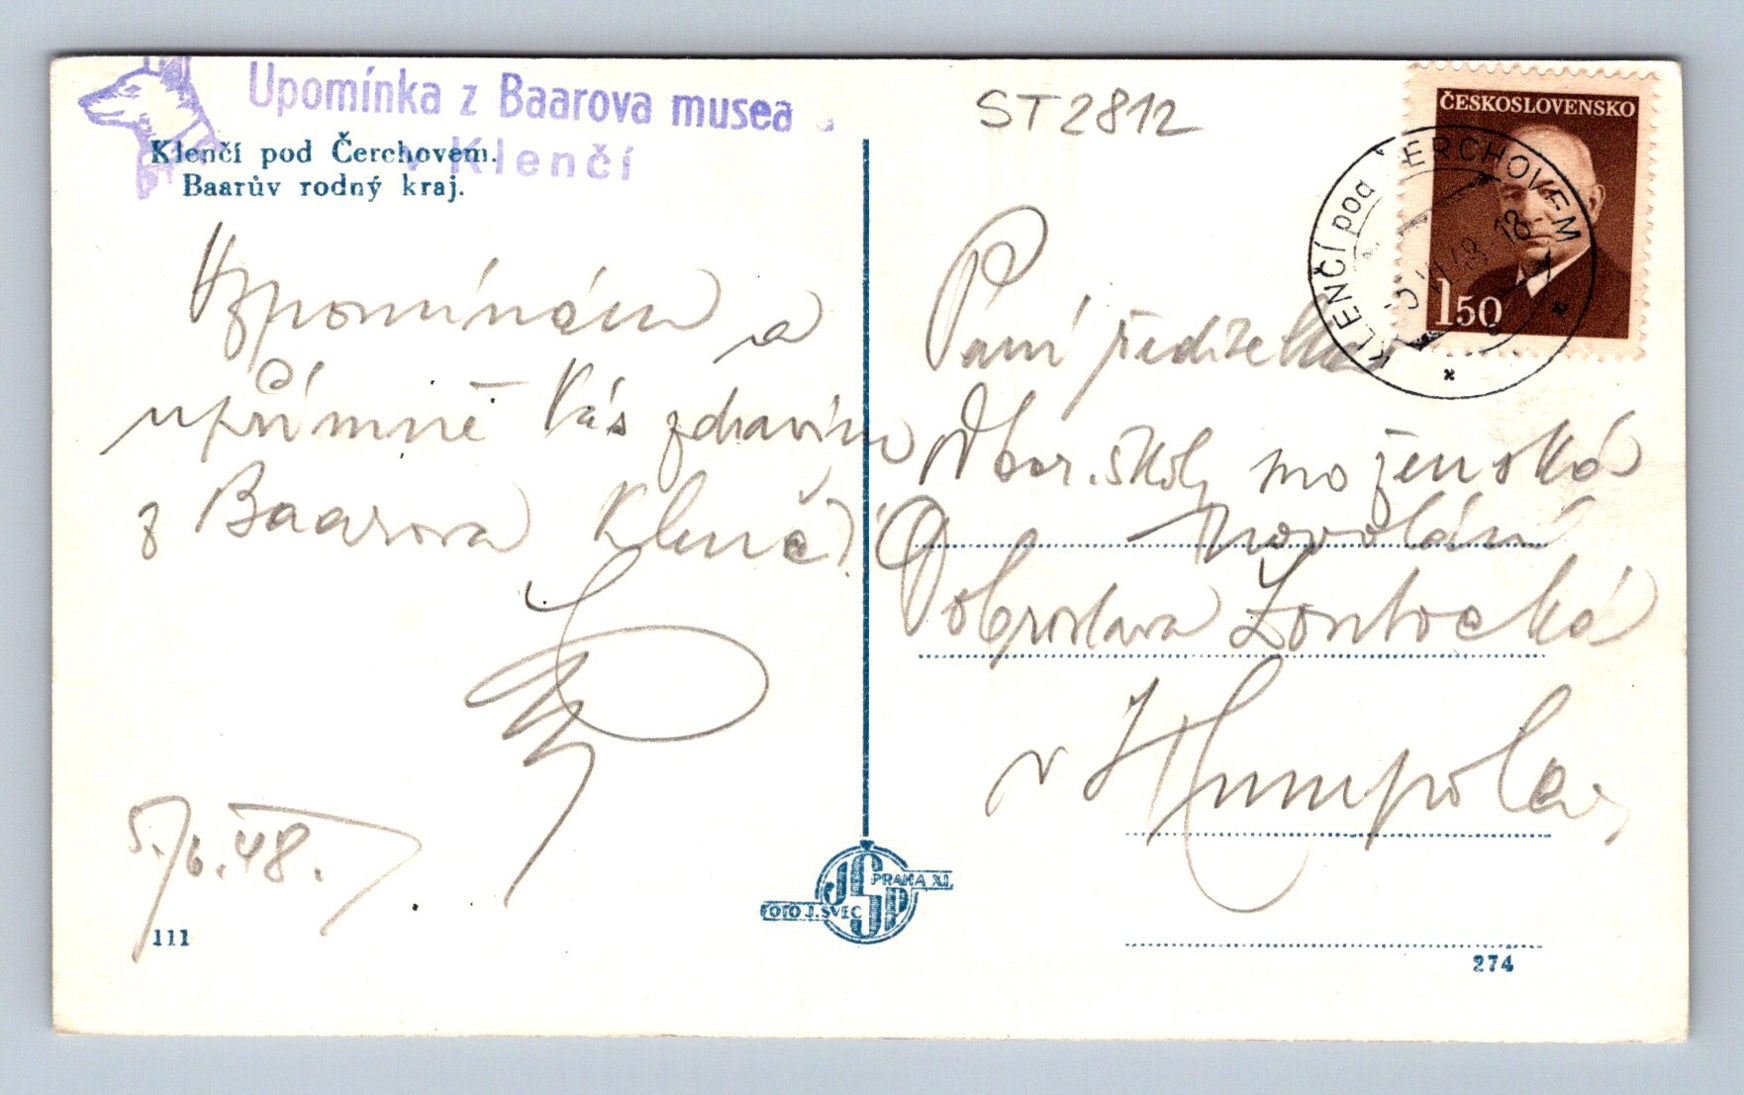 Upomínka z Baarova musea
v Klenčí
Klenčí pod Čerchovem.
Baarův rodný kraj.
ST2812
ČESKOSLOVENSKO
1 50
KLENČÍ pod ČERCHOVEM
5.VI.48 18
Vzpomínám a
upřímně Vás zdravím
z Baarova Klenčí.
5./6. 48.
111
Paní ředitelka
odbor. školy pro ženská
povolání
Dobroslava
v Humpolci,
FOTO J. ŠVEC
JSP
PRAHA XI.
274